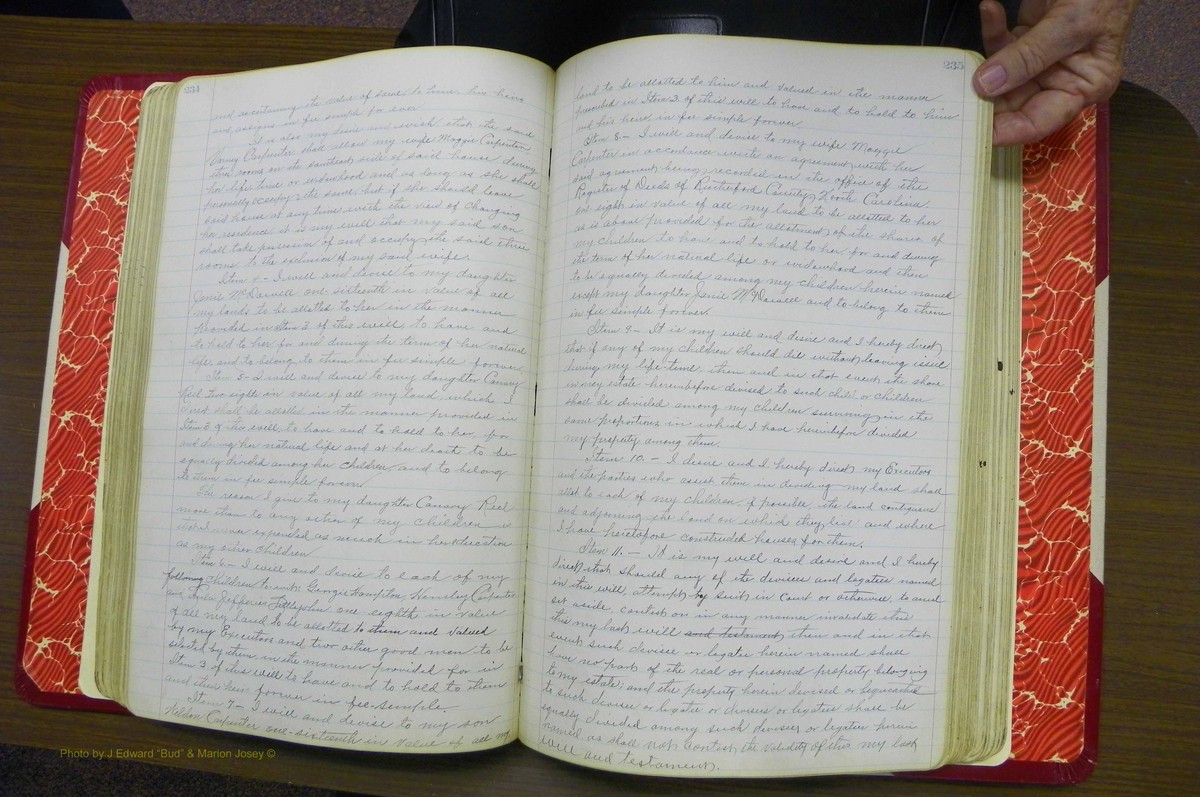 234
and ascertaining the value of same to him his heirs
and assigns in fee simple for ever
It is also my desire and wish that the said
Vance Carpenter shall allow my wife Maggie Carpenter
three rooms on the southern side of said house during
her life time or widowhood and as long as she shall
personally occupy the same but if she should leave
said house at any time with the view of changing
her residence it is my will that my said son
shall take possession of and occupy the said three
rooms to the exclusion of my said wife.
Item 4 - I will and devise to my daughter
Janie McDaniell one-sixteenth in value of all
my lands to be allotted to her in the manner
provided in Item 3 of this will to have and
to hold to her for and during the term of her natural
life and to belong to them in fee simple forever
Item 5 - I will and devise to my daughter
Reel two eights in value of all my land which
and shall be allotted in the manner provided in
Item 3 of this will to have and to hold to her for
and during her natural life and at her death to be
equally divided among her children and to belong
to them in fee simple forever
The reason I give to my daughter Reel
more than to any other of my children is
that I never expended as much in her education
as my other children
Item 6 - I will and devise to each of my
following Children to wit: George Hampton Carpenter
and Jefferies Littlejohn one eighth in value
of all my land to be allotted to them and valued
by my Executors and two other good men to be
selected by them in the manner provided for in
Item 3 of this will to have and to hold to them
and their heirs forever in fee-simple.
Item 7 - I will and devise to my son
Carpenter one-sixteenth in value of all my
235
land to be allotted to him and valued in the manner
provided in Item 3 of this will to have and to hold to him
and his heirs in fee simple forever
Item 8 - I will and devise to my wife Maggie
Carpenter in accordance with an agreement with her
said agreement being recorded in the office of the
Register of Deeds of Rutherford County, North Carolina.
one eighth in value of all my land to be allotted to her
as is above provided for the allotment of the shares of
my children to have and to hold to her for and during
the term of her natural life or widowhood and then
to be equally divided among my children herein named
except my daughter Janie McDaniell and to belong to them
in fee simple forever.
Item 9 - It is my will and desire and I hereby direct
that if any of my children should die without leaving issue
during my life-time then and in that event the share
in my estate hereinbefore devised to such child or children
shall be divided among my children surviving in the
same proportions in which I have hereinbefore divided
my property among them.
Item 10. - I desire and I hereby direct my Executors
and the parties who assist them in dividing my land shall
allot to each of my children if possible the land contiguous
and adjoining the land on which they live and where
I have heretofore constructed houses for them.
Item 11. - It is my will and desire and I hereby
direct that should any of the devisees and legatees named
in this will, attempt by suit in Court or otherwise to avoid
set aside, contest or in any manner invalidate this
this my last will and testament, then and in that
event such devisee or legatee herein named shall
have no part of the real or personal property belonging
to my estate; and the property herein devised or bequeathed
to such devisee or legatee or devisees or legatees shall be
equally divided among such devisees or legatees herein
named as shall not contest the validity of this my last
will and testament.
Photo by J Edward "Bud" & Marion Josey ©